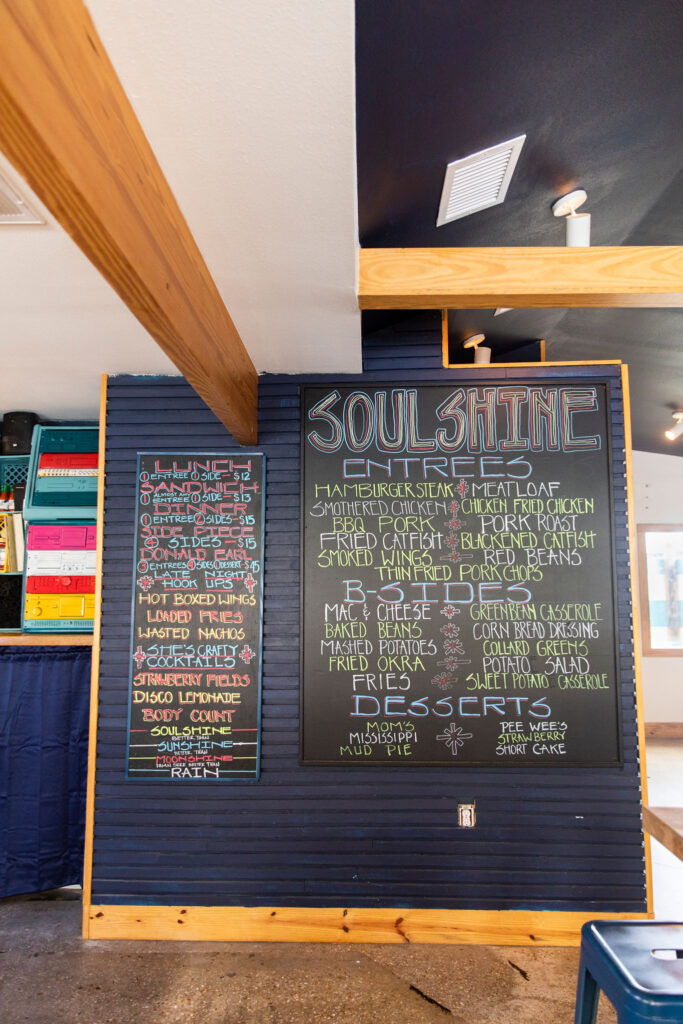 LUNCH
① ENTREE ① SIDE - $12
SANDWICH
ALMOST ANY
① ENTREE ① SIDE - $13
DINNER
① ENTREE ② SIDES - $15
SIDE PIECE
④ SIDES - $15
DONALD EARL
③ ENTREES ④ SIDES ① DESSERT - $45
LATE NIGHT
HOOK UPS
HOT BOXED WINGS
LOADED FRIES
WASTED NACHOS
SHE'S CRAFTY
COCKTAILS
STRAWBERRY FIELDS
DISCO LEMONADE
BODY COUNT
SOULSHINE
BETTER THAN
SUNSHINE
BETTER THAN
MOONSHINE
DAMN SURE BETTER THAN
RAIN
SOULSHINE
ENTREES
HAMBURGER STEAK MEATLOAF
SMOTHERED CHICKEN CHICKEN FRIED CHICKEN
BBQ PORK PORK ROAST
FRIED CATFISH BLACKENED CATFISH
SMOKED WINGS RED BEANS
THIN FRIED PORK CHOPS
B-SIDES
MAC & CHEESE GREENBEAN CASSEROLE
BAKED BEANS CORN BREAD DRESSING
MASHED POTATOES COLLARD GREENS
FRIED OKRA POTATO SALAD
FRIES SWEET POTATO CASSEROLE
DESSERTS
MOM'S PEE WEE'S
MISSISSIPPI STRAWBERRY
MUD PIE SHORT CAKE